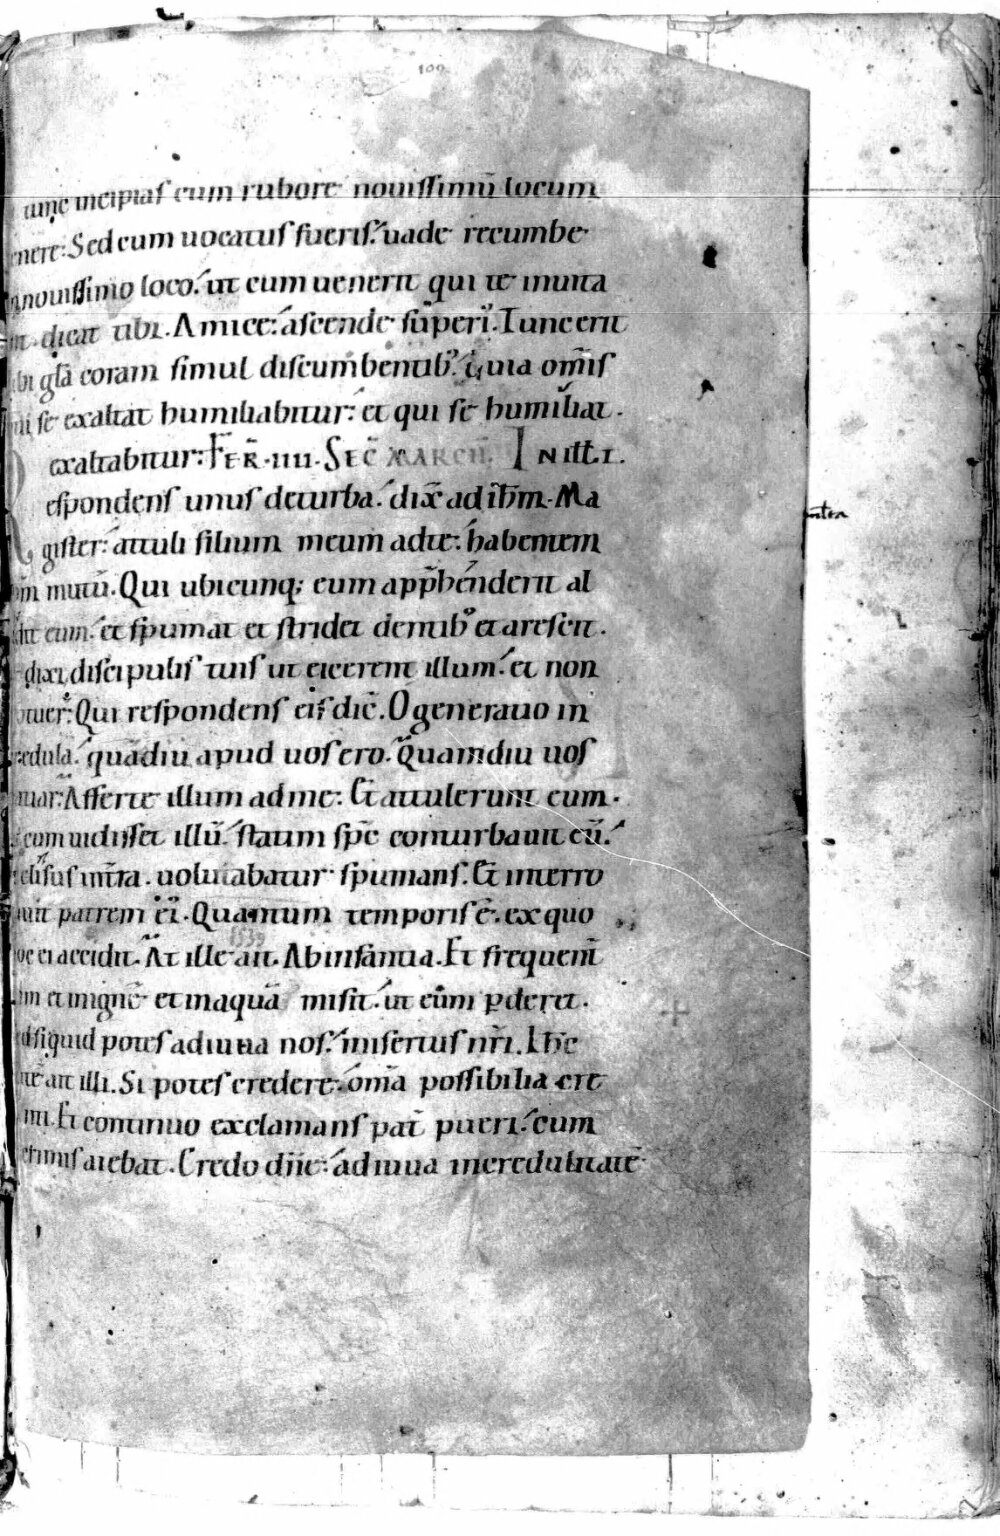 100
tunc incipias cum rubore nouissimū locum
tenere: Sed cum uocatus fueris: uade recumbe
in nouissimo loco. ut cum uenerit qui te inuita
uit. dicat tibi. Amice: ascende supeři. Tunc erit
tibi gła coram simul discumbentib;. Quia omīs
qui se exaltat humiliabitur: et qui se humiliat.
exaltabitur: FER̄. IIII. SEC̄ MARCU̅. IN ILL̅ T.
Respondens unus de turba. dix̄ ad ih̄m. Ma
gister: attuli filium meum ad te: habentem
sp̄m mutū. Qui ubicunq; eum app̄henderit al
lidit eum. et spumat et stridet dentib; et arescit.
dixi discipulis tuis ut eicerent illum. et non
potuer̄: Qui respondens eis dic̄. O generatio in
credula. quādiu apud uos ero. Quamdiu uos
patiar: Afferte illum ad me. Et attulerunt eum.
Et cum uidisset illū. statim sp̄c conturbauit eū.
et elisus int̄ra. uolutabatur spumans. Et interro
gauit patrem ei. Quantum temporis ē. ex quo
1539
hoc ei accidit. At ille ait. Ab infantia. Et frequent̄
eum et in ignē et in aquā misit. ut eum p̱deret.
Sed siquid potes adiuua nos. misertus nr̄i. Ih̄c
autē ait illi. Si potes credere. om̄a possibilia cre
denti. Et continuo exclamans pat̄ pueri. cum
lacrimis aiebat. Credo dn̄e: adiuua incredulitatē